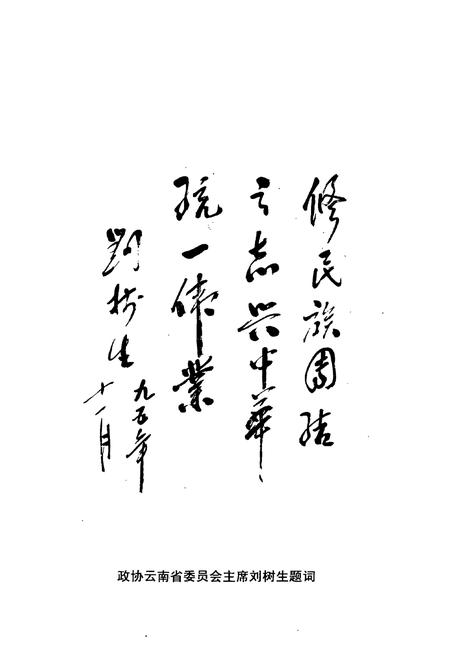 修民族團结
之志兴中華
统一偉業
劉树生
九五年
十一月
政协云南省委员会主席刘树生题词